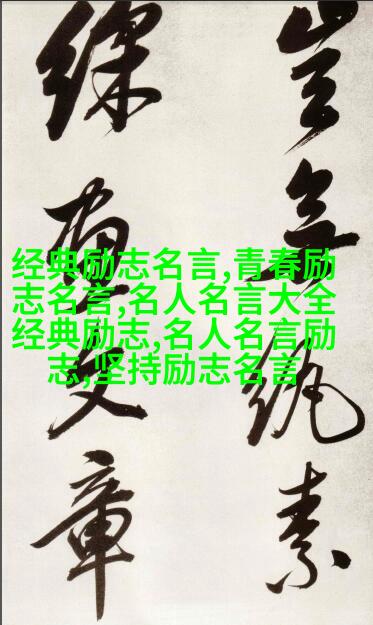 豈無紈素
綵畫文章
经典励志名言,青春励
志名言,名人名言大全
经典励志,名人名言励
志,坚持励志名言